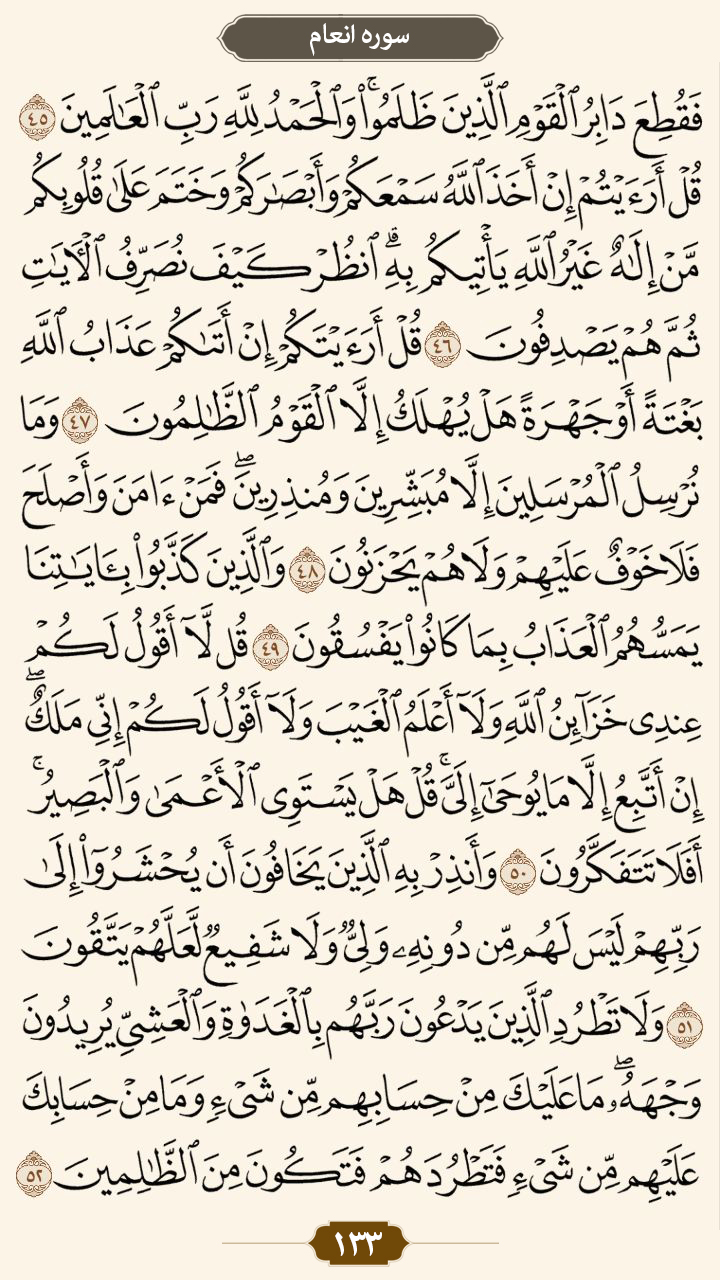 سوره انعام
فَقُطِعَ دَابِرُ ٱلْقَوْمِ ٱلَّذِينَ ظَلَمُوا۟ۚ وَٱلْحَمْدُ لِلَّهِ رَبِّ ٱلْعَـٰلَمِينَ ٤٥
قُلْ أَرَءَيْتُمْ إِنْ أَخَذَ ٱللَّهُ سَمْعَكُمْ وَأَبْصَـٰرَكُمْ وَخَتَمَ عَلَىٰ قُلُوبِكُم
مَّنْ إِلَـٰهٌ غَيْرُ ٱللَّهِ يَأْتِيكُم بِهِۗ ٱنظُرْ كَيْفَ نُصَرِّفُ ٱلْـَٔايَـٰتِ
ثُمَّ هُمْ يَصْدِفُونَ ٤٦ قُلْ أَرَءَيْتَكُمْ إِنْ أَتَىٰكُمْ عَذَابُ ٱللَّهِ
بَغْتَةً أَوْ جَهْرَةً هَلْ يُهْلَكُ إِلَّا ٱلْقَوْمُ ٱلظَّـٰلِمُونَ ٤٧ وَمَا
نُرْسِلُ ٱلْمُرْسَلِينَ إِلَّا مُبَشِّرِينَ وَمُنذِرِينَۖ فَمَنْ ءَامَنَ وَأَصْلَحَ
فَلَا خَوْفٌ عَلَيْهِمْ وَلَا هُمْ يَحْزَنُونَ ٤٨ وَٱلَّذِينَ كَذَّبُوا۟ بِـَٔايَـٰتِنَا
يَمَسُّهُمُ ٱلْعَذَابُ بِمَا كَانُوا۟ يَفْسُقُونَ ٤٩ قُل لَّآ أَقُولُ لَكُمْ
عِندِى خَزَآئِنُ ٱللَّهِ وَلَآ أَعْلَمُ ٱلْغَيْبَ وَلَآ أَقُولُ لَكُمْ إِنِّى مَلَكٌۖ
إِنْ أَتَّبِعُ إِلَّا مَا يُوحَىٰٓ إِلَىَّۚ قُلْ هَلْ يَسْتَوِى ٱلْأَعْمَىٰ وَٱلْبَصِيرُۚ
أَفَلَا تَتَفَكَّرُونَ ٥٠ وَأَنذِرْ بِهِ ٱلَّذِينَ يَخَافُونَ أَن يُحْشَرُوٓا۟ إِلَىٰ
رَبِّهِمْ لَيْسَ لَهُم مِّن دُونِهِۦ وَلِىٌّ وَلَا شَفِيعٌ لَّعَلَّهُمْ يَتَّقُونَ
٥١ وَلَا تَطْرُدِ ٱلَّذِينَ يَدْعُونَ رَبَّهُم بِٱلْغَدَوٰةِ وَٱلْعَشِىِّ يُرِيدُونَ
وَجْهَهُۥۖ مَا عَلَيْكَ مِنْ حِسَابِهِم مِّن شَىْءٍ وَمَا مِنْ حِسَابِكَ
عَلَيْهِم مِّن شَىْءٍ فَتَطْرُدَهُمْ فَتَكُونَ مِنَ ٱلظَّـٰلِمِينَ ٥٢
١٣٣